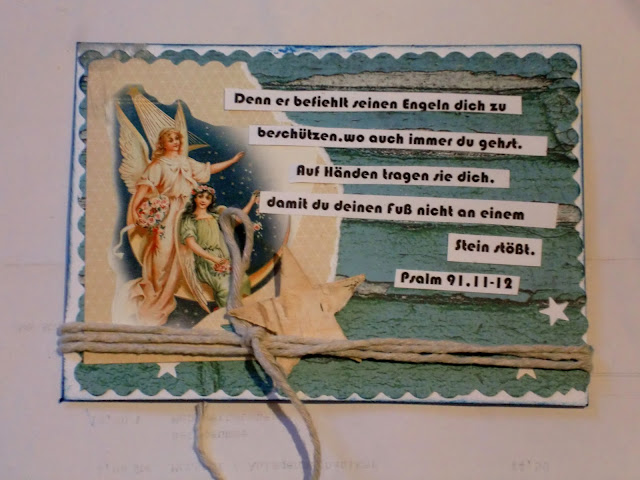 Denn er befiehlt seinen Engeln dich zu
beschützen.wo auch immer du gehst.
Auf Händen tragen sie dich.
damit du deinen Fuß nicht an einem
Stein stößt.
Psalm 91.11-12